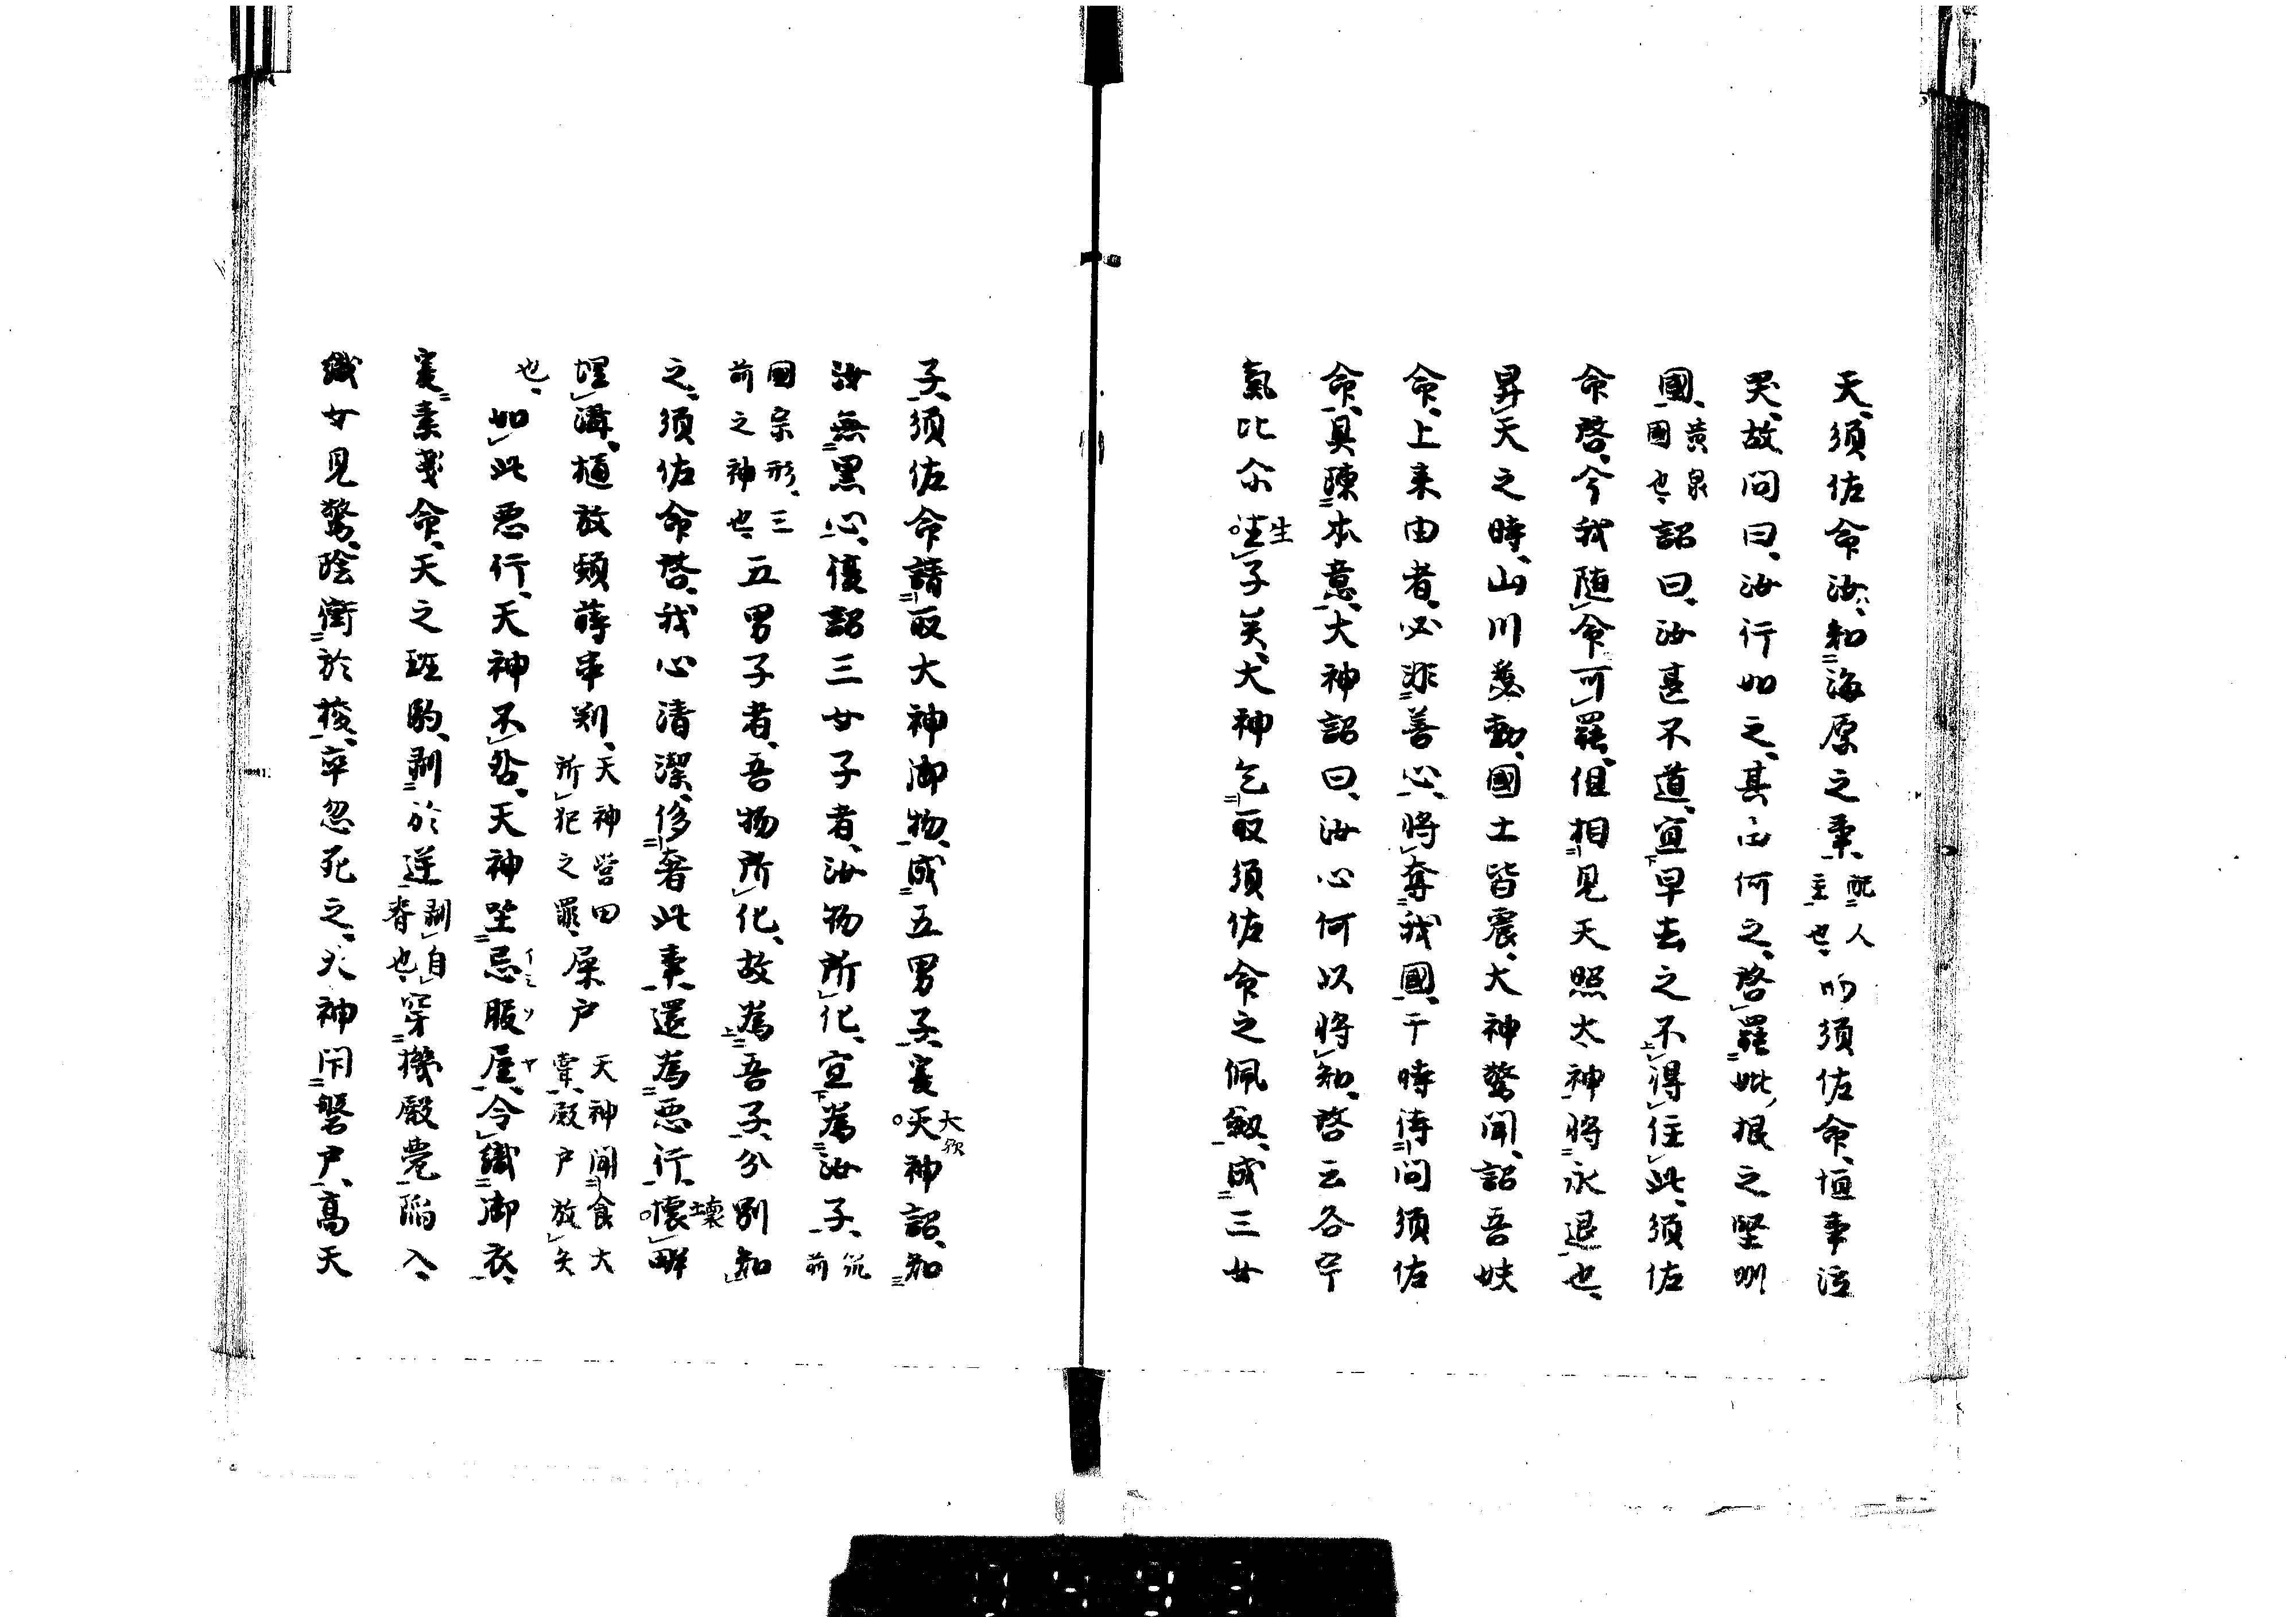 天須佐命汝知海原之事 配人主也 而須佐命恒事泣
哭故問曰汝行如之甚何之啓罷妣根之堅州
國 黄泉國也 詔曰汝甚不道宜早去之不得住此須佐
命啓今我随命可罷但相見天照大神将永退也
昇天之時山川動國土皆震大神驚聞詔吾
命上来由者必非善心将奪我國于時待問須佐
命具陳本意大神詔曰汝心何以将知啓云各宇
氣比尓生子矣大神乞取須佐命之佩釼成三女
子須佐命請取大神御物成五男子爰天神詔知
大歟
汝無黒心復詔三女子者汝物所化宜為汝子 筑前
國宗形三前之神也 五男子者吾物所化故為吾子分別知
之須佐命啓我心清潔侈奢此事還為悪行懐畔
壊
埋溝樋放頻蒔串刺 天神営田所犯之罪 屎戸 天神聞食大嘗殿戸放矢
也 如此悪行天神不咎天神坐忌服屋令織御衣
イミハヤ
爰素戔命天之班駒剥於逆 剥自脊也 穿機殿甍陥入
織女見驚陰衝於梭卒忽死之大神閇磐戸高天